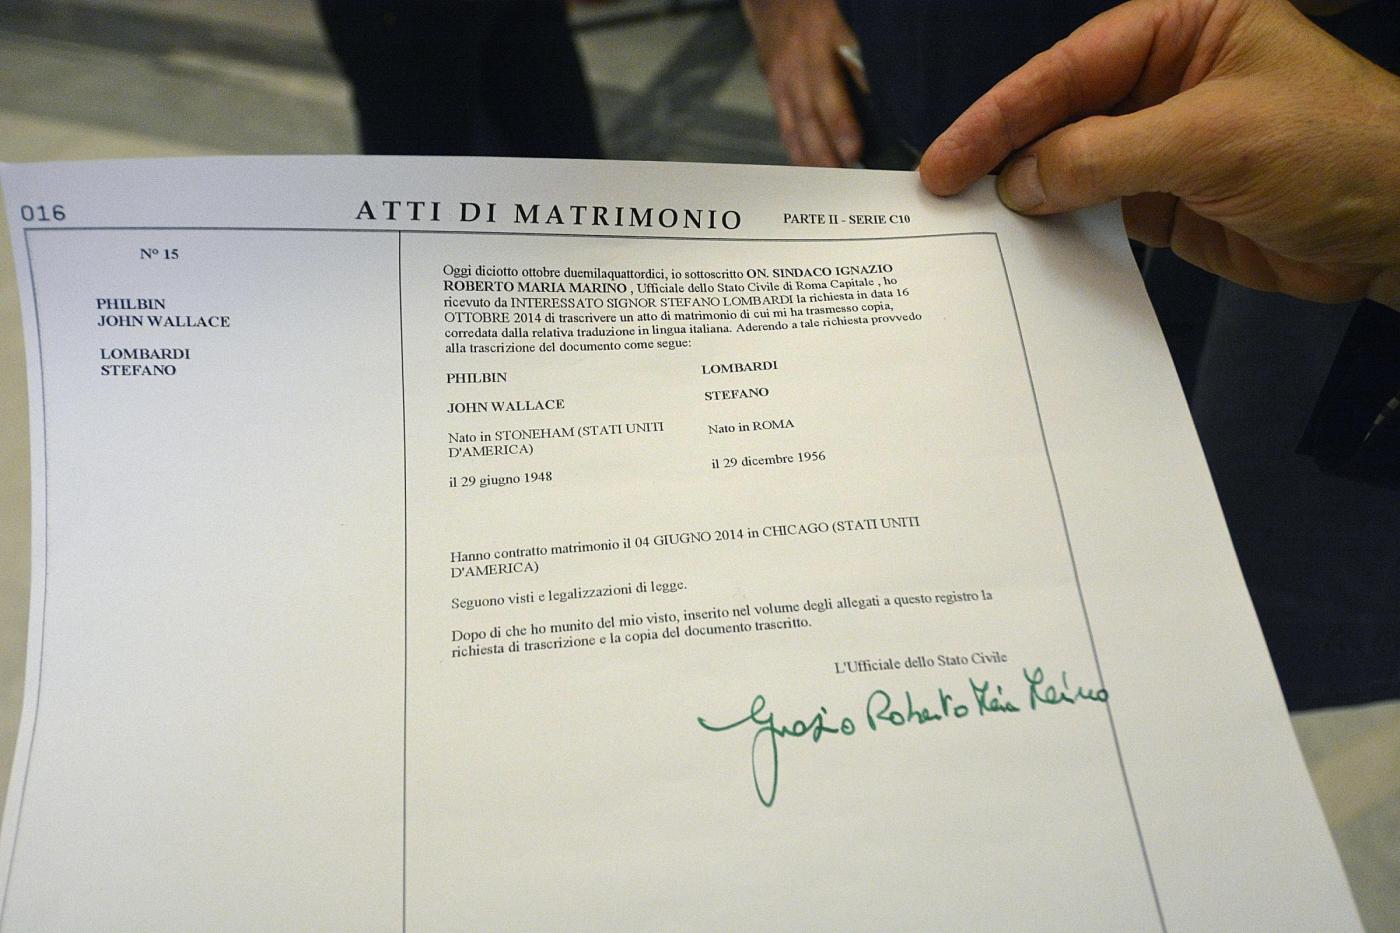 016
ATTI DI MATRIMONIO
PARTE II - SERIE C10
Nº 15
PHILBIN
JOHN WALLACE
LOMBARDI
STEFANO
Oggi diciotto ottobre duemilaquattordici, io sottoscritto ON. SINDACO IGNAZIO
ROBERTO MARIA MARINO , Ufficiale dello Stato Civile di Roma Capitale , ho
ricevuto da INTERESSATO SIGNOR STEFANO LOMBARDI la richiesta in data 16
OTTOBRE 2014 di trascrivere un atto di matrimonio di cui mi ha trasmesso copia,
corredata dalla relativa traduzione in lingua italiana. Aderendo a tale richiesta provvedo
alla trascrizione del documento come segue:
PHILBIN
JOHN WALLACE
Nato in STONEHAM (STATI UNITI
D'AMERICA)
il 29 giugno 1948
LOMBARDI
STEFANO
Nato in ROMA
il 29 dicembre 1956
Hanno contratto matrimonio il 04 GIUGNO 2014 in CHICAGO (STATI UNITI
D'AMERICA)
Seguono visti e legalizzazioni di legge.
Dopo di che ho munito del mio visto, inserito nel volume degli allegati a questo registro la
richiesta di trascrizione e la copia del documento trascritto.
L'Ufficiale dello Stato Civile
Ignazio Roberto Maria Marino